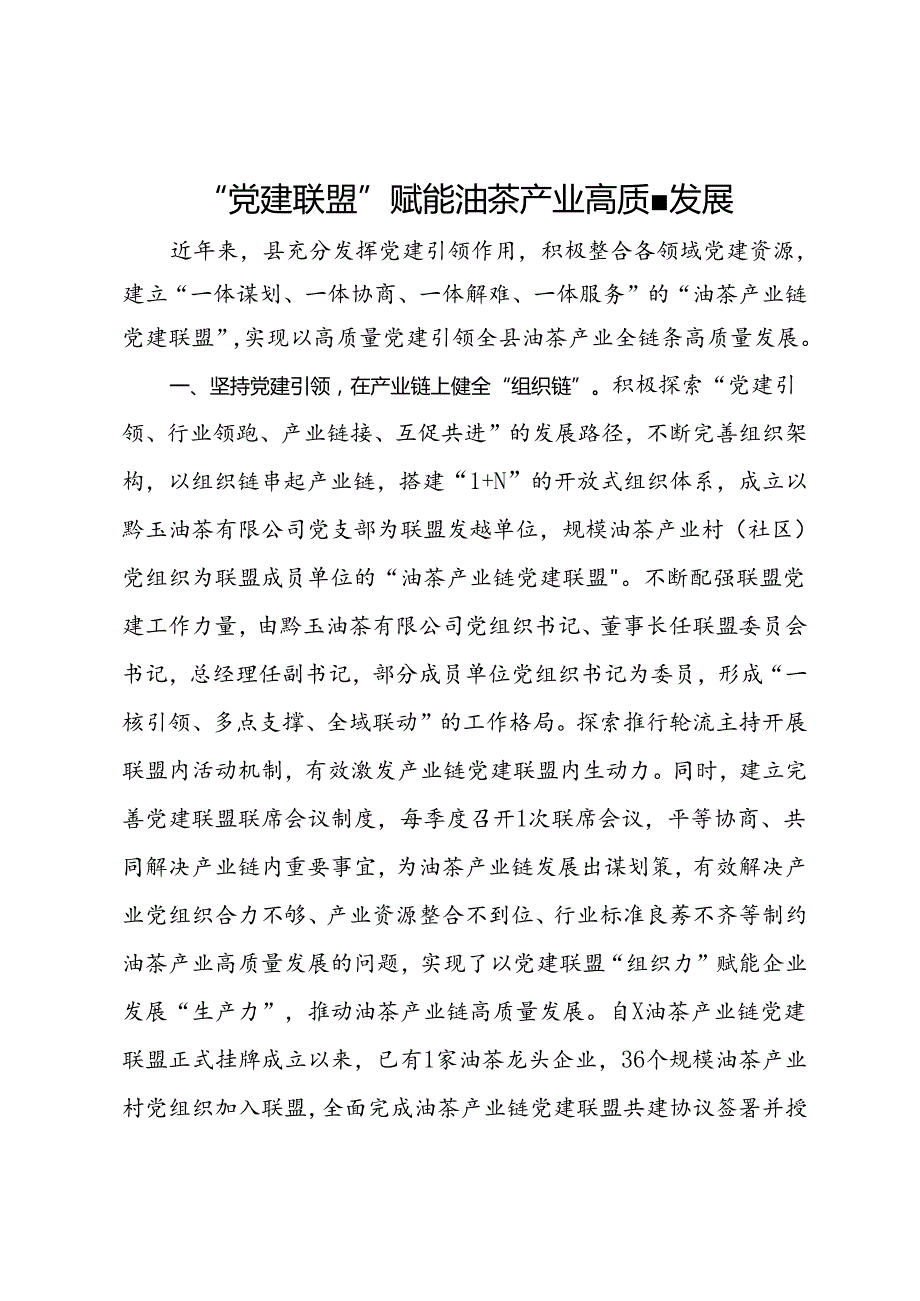 “党建联盟”赋能油茶产业高质■发展
近年来，县充分发挥党建引领作用，积极整合各领域党建资源，
建立“一体谋划、一体协商、一体解难、一体服务”的“油茶产业链
党建联盟”,实现以高质量党建引领全县油茶产业全链条高质量发展。
一、坚持党建引领，在产业链上健全“组织链”。积极探索“党建引
领、行业领跑、产业链接、互促共进”的发展路径，不断完善组织架
构，以组织链串起产业链，搭建“1+N”的开放式组织体系，成立以
黔玉油茶有限公司党支部为联盟发越单位，规模油茶产业村（社区）
党组织为联盟成员单位的“油茶产业链党建联盟"。不断配强联盟党
建工作力量，由黔玉油茶有限公司党组织书记、董事长任联盟委员会
书记，总经理任副书记，部分成员单位党组织书记为委员，形成“一
核引领、多点支撑、全域联动”的工作格局。探索推行轮流主持开展
联盟内活动机制，有效激发产业链党建联盟内生动力。同时，建立完
善党建联盟联席会议制度，每季度召开1次联席会议，平等协商、共
同解决产业链内重要事宜，为油茶产业链发展出谋划策，有效解决产
业党组织合力不够、产业资源整合不到位、行业标准良莠不齐等制约
油茶产业高质量发展的问题，实现了以党建联盟“组织力”赋能企业
发展“生产力”，推动油茶产业链高质量发展。自X油茶产业链党建
联盟正式挂牌成立以来，已有1家油茶龙头企业，36个规模油茶产业
村党组织加入联盟，全面完成油茶产业链党建联盟共建协议签署并授